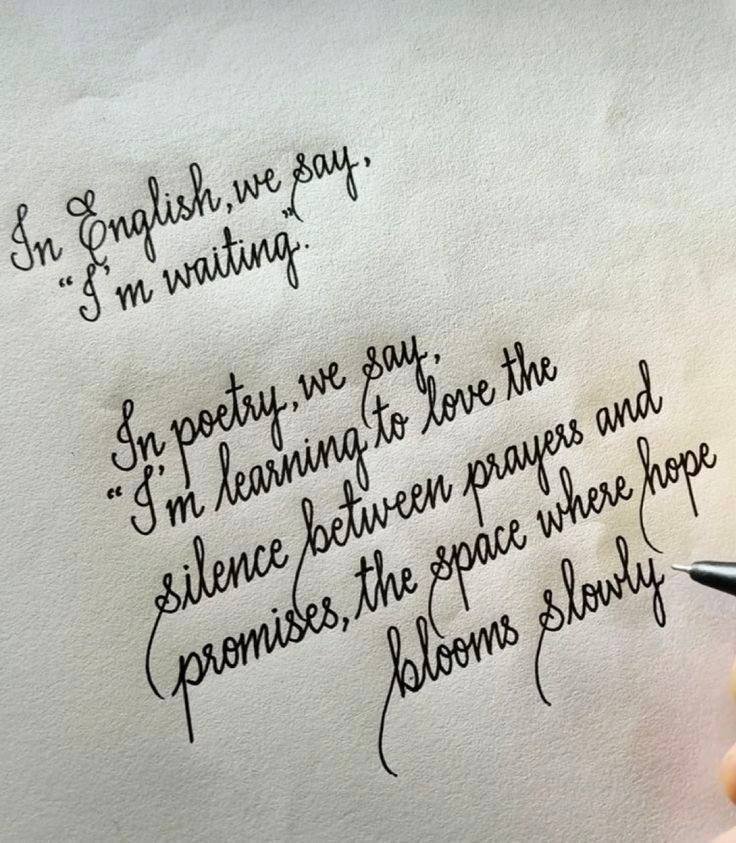 In English, we say,
"I'm waiting."
In poetry, we say,
"I'm learning to love the
silence between prayers and
promises, the space where hope
blooms slowly